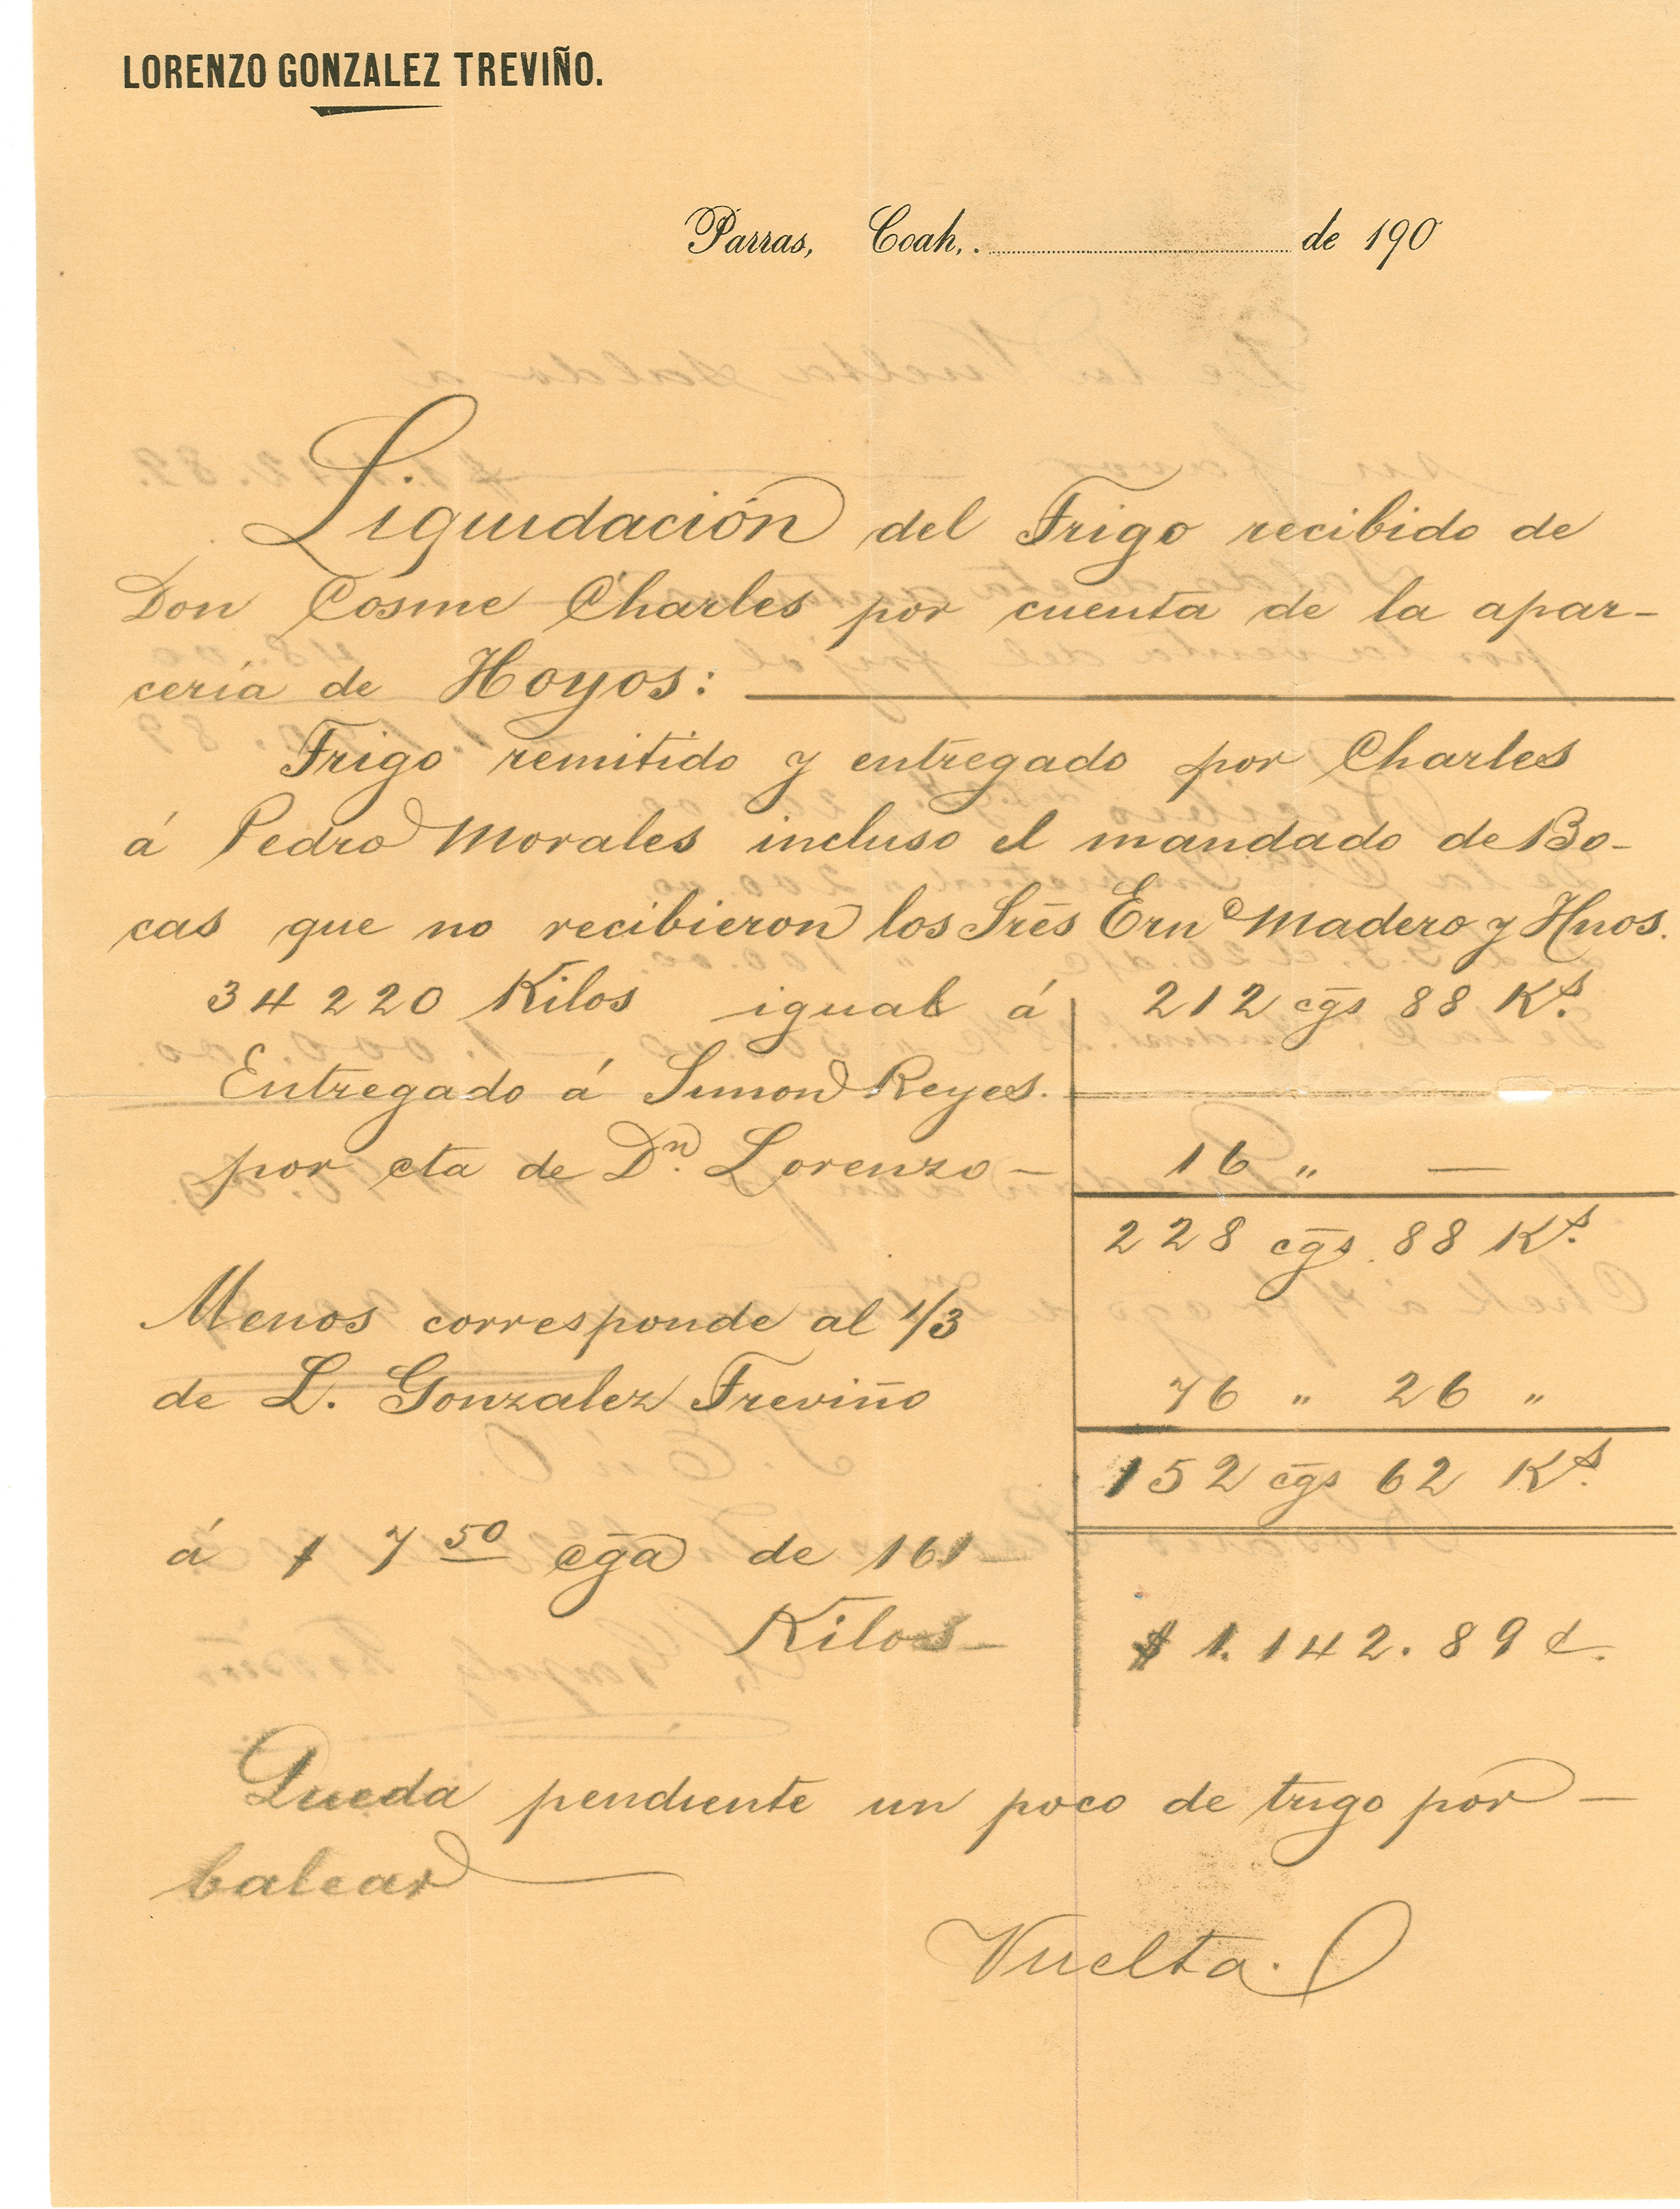 LORENZO GONZALEZ TREVIÑO.
Parras, Coah,. de 190
Liquidación del Trigo recibido de
Don Cosme Charles por cuenta de la apar-
cería de Hoyos:
Trigo remitido y entregado por Charles
á Pedro Morales incluso el mandado de Bo-
cas que no recibieron los Srēs Ernᵒ Madero y Hnos.
34220 Kilos igual á 212 c̄gs 88 Kˢ.
Entregado á Simon Reyes.
por cta de Dⁿ. Lorenzo — 16 „ —
228 c̄gs 88 Kˢ.
Menos corresponde al 1/3
de L. Gonzalez Treviño 76 „ 26 „
152 c̄gs 62 Kˢ.
á $ 7 50 c̄ga de 161
Kilos — $ 1.142.89 ¢.
Queda pendiente un poco de trigo por —
balear
Vuelta.